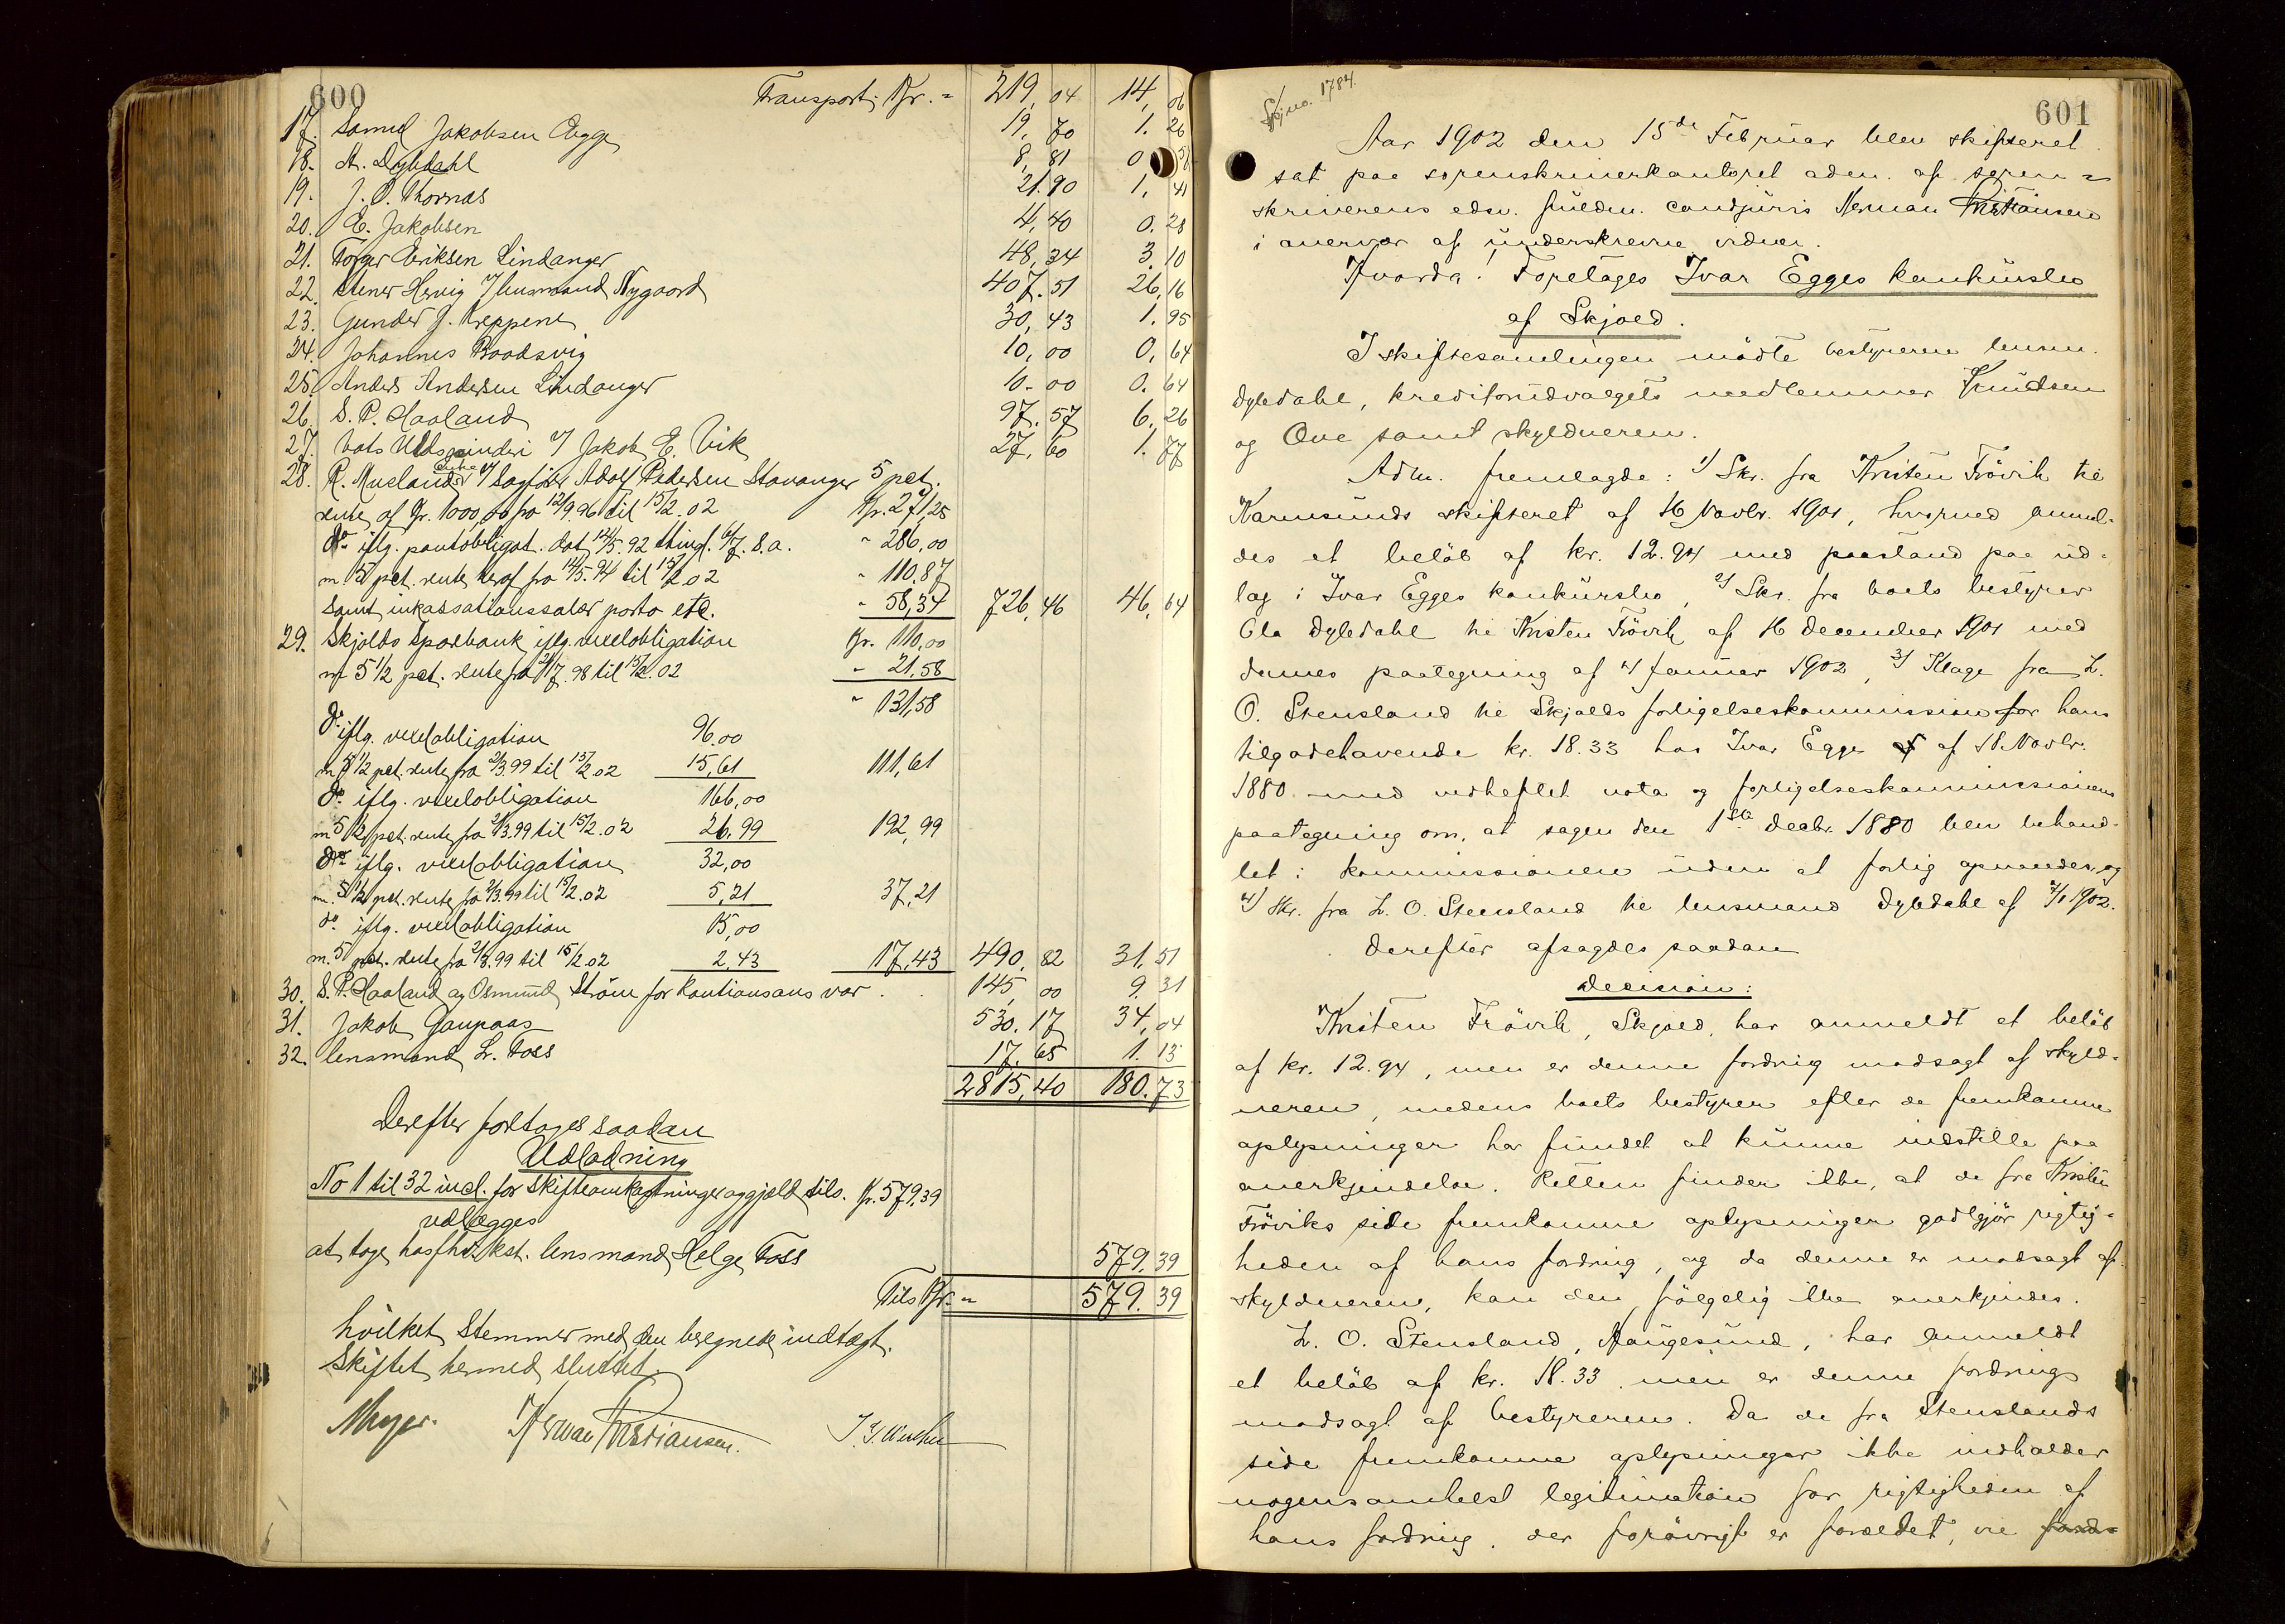 600
Transport Kr. = 219,04 14,06
17. Samuel Jakobsen Egge 19,70 1.26
18. A. Dybdahl 8,81 0,56
19. J. O. Thornæs 21.90 1,41
20. E. Jakobsen 4,40 0.28
21. Torger Eriksen Lindanger 48,34 3.10
22. Stener Hervig v/ lensmand Nygaard 407.51 26,16
23. Gunder J. Kreppene 30,43 1.95
24. Johannes Baadsvig 10,00 0,64
25. Anders Andersen Lindanger 10.00 0.64
26. S. P. Haaland 97.57 6.26
27. Vats Uldspinderi v/ Jakob E. Vik 27,60 1.77
28. R. Muslands enke v/ Sagfører Adolf Pedersen Stavanger 5 pct.
rente af Kr. 1000,00 fra 12/9.96 til 15/2.02 Kr. 271,25
do iflg. pantobligat. dat. 14/5.92 thingl. 6/7. s.a. " 286,00
m. 5 pct. rente heraf fra 14/5.94 til 15/2 02 " 110.87
samt inkassationssalær porto etc. " 58,34 726,46 46,64
29. Skjolds Sparebank iflg. vexelobligation Kr. 110,00
m 5 1/2 pct. rente fra 21/7.98 til 15/2.02 " 21,58
" 131,58
do iflg. vexelobligation 96.00
m 5 1/2 pct. rente fra 2/3.99 til 15/2 02 15,61 111,61
do iflg. vexelobligation 166,00
m 5 1/2 pct. rente fra 2/3.99 til 15/2.02 26,99 192,99
do iflg. vexelobligation 32,00
m. 5 1/2 pct. rente fra 2/3.99 til 15/2.02 5,21 37,21
do iflg. vexelobligation 15,00
m. 5 pct. rente fra 2/8.99 til 15/2 02 2,43 17,43 490,82 31,51
30. S. P. Haaland og Osmund Ström for Kautionsansvar . . 145,00 9.31
31. Jakob Gaupaas 530.17 34,04
32. lensmand L. Foss 17,65 1.13
2815,40 180.73
Derefter foretages saadan
Udlodning
No 1 til 32 incl. for Skifteomkostninger og gjæld tils. Kr. 579,39
udlægges
at tage hos fhv. kst. lensmand Helge Foss 579,39
Tils Kr. = 579.39
hvilket stemmer med den beregnede indtægt.
Skiftet hermed sluttet.
Meyer. Herman Kristiansen.
Skj. no. 1784.
601
Aar 1902 den 15de Februar blev skifteret
sat paa sorenskriverkontoret adm. af soren=
skriverens edsv. fuldm. cand juris Herman Kristiansen
i overvær af underskrevne vidner.
Hvorda! Foretages Ivar Egges konkursbo
af Skjold.
I skiftesamlingen mødte bestyreren lensm.
Dybdahl, kreditorudvalgets medlemmer Knudsen
og Ove samt skyldneren.
Adm. fremlagde: 1/ Skr. fra Kristen Frövik til
Karmsunds skifteret af 16 Novbr. 1901, hvorved anmel-
des et beløb af kr. 12.94 med paastand paa ud-
lag i Ivar Egges konkursbo, 2/ Skr. fra boets bestyrer
Ola Dybdahl til Kristen Frövik af 16 december 1901 med
dennes paategning af 4 Januar 1902, 3/ Klage fra L.
O. Stensland til Skjolds forligelseskommission for hans
tilgodehavende kr. 18.33 hos Ivar Egge af 18. Novbr.
1880 med vedheftet nota og forligelseskommissionens
paategning om, at sagen den 1ste decbr. 1880 blev behand-
let i kommissionen uden at forlig opnaaedes, og
4/ Skr. fra L. O. Stensland til lensmand Dybdahl af 4/1 1902.
Derefter afsagdes saadan
decision:
Kristen Frövik, Skjold, har anmeldt et beløb
af kr. 12.94, men er denne fordring modsagt af skyld-
neren, medens boets bestyrer efter de fremkomne
oplysninger har fundet at kunne indstille paa
anerkjendelse. Retten finder ikke, at de fra Kristen
Fröviks side fremkomne oplysninger godtgjør rigtig-
heden af hans fordring, og da denne er modsagt af
skyldneren, kan den følgelig ikke anerkjendes.
L. O. Stensland, Haugesund, har anmeldt
et beløb af kr. 18.33 men er denne fordring
modsagt af bestyreren. Da de fra Stenslands
side fremkomne oplysninger ikke indholder
nogensomhelst legitimation for rigtigheden af
hans fordring, der forøvrigt er forældet, vil